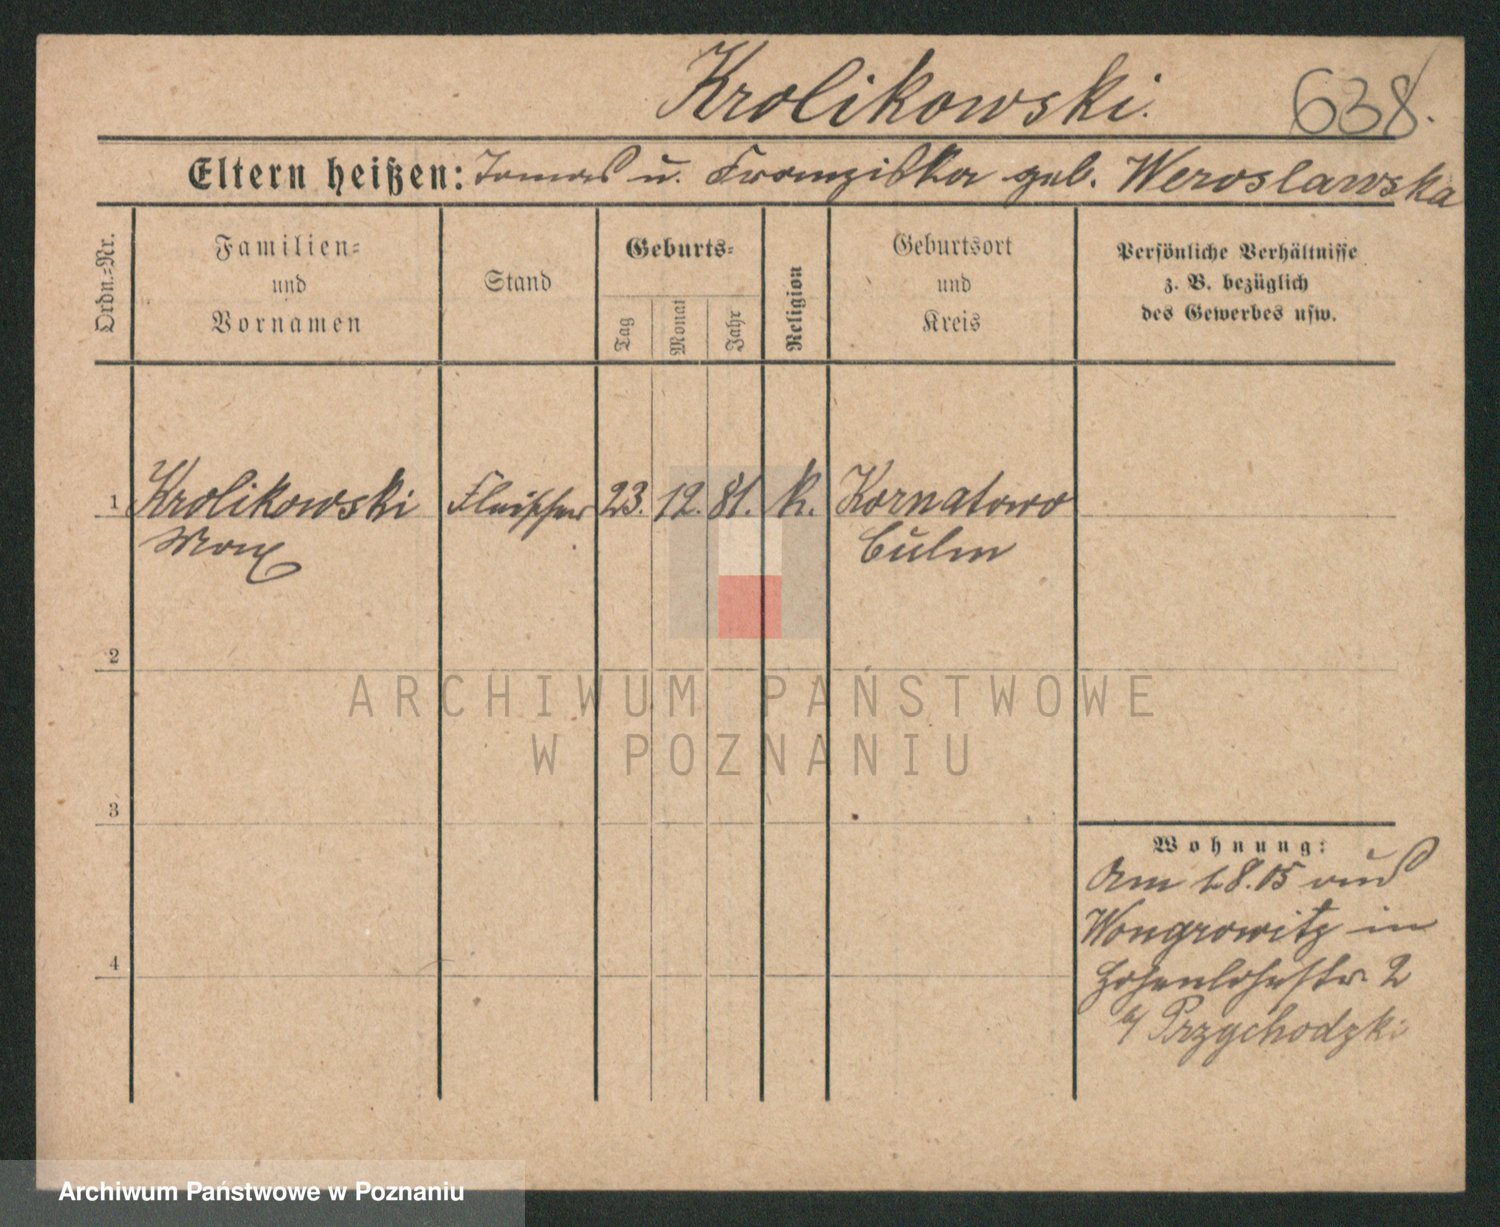 Krolikowski.
638.
Eltern heißen: Tomas u. Franziska geb. Weroslawska
Ordn.-Nr.
Familien- und Vornamen
Stand
Geburts-
Tag
Monat
Jahr
Religion
Geburtsort und Kreis
Persönliche Verhältnisse
z. B. bezüglich
des Gewerbes usw.
1 Krolikowski Fleischer 23. 12. 81. k. Kornatowo
Max Culm
2
3
4
Wohnung:
Am 1.8.15 aus
Wongrowitz in
Hohenlohestr. 2
b/ Przychodzki
ARCHIWUM PAŃSTWOWE
W POZNANIU
Archiwum Państwowe w Poznaniu